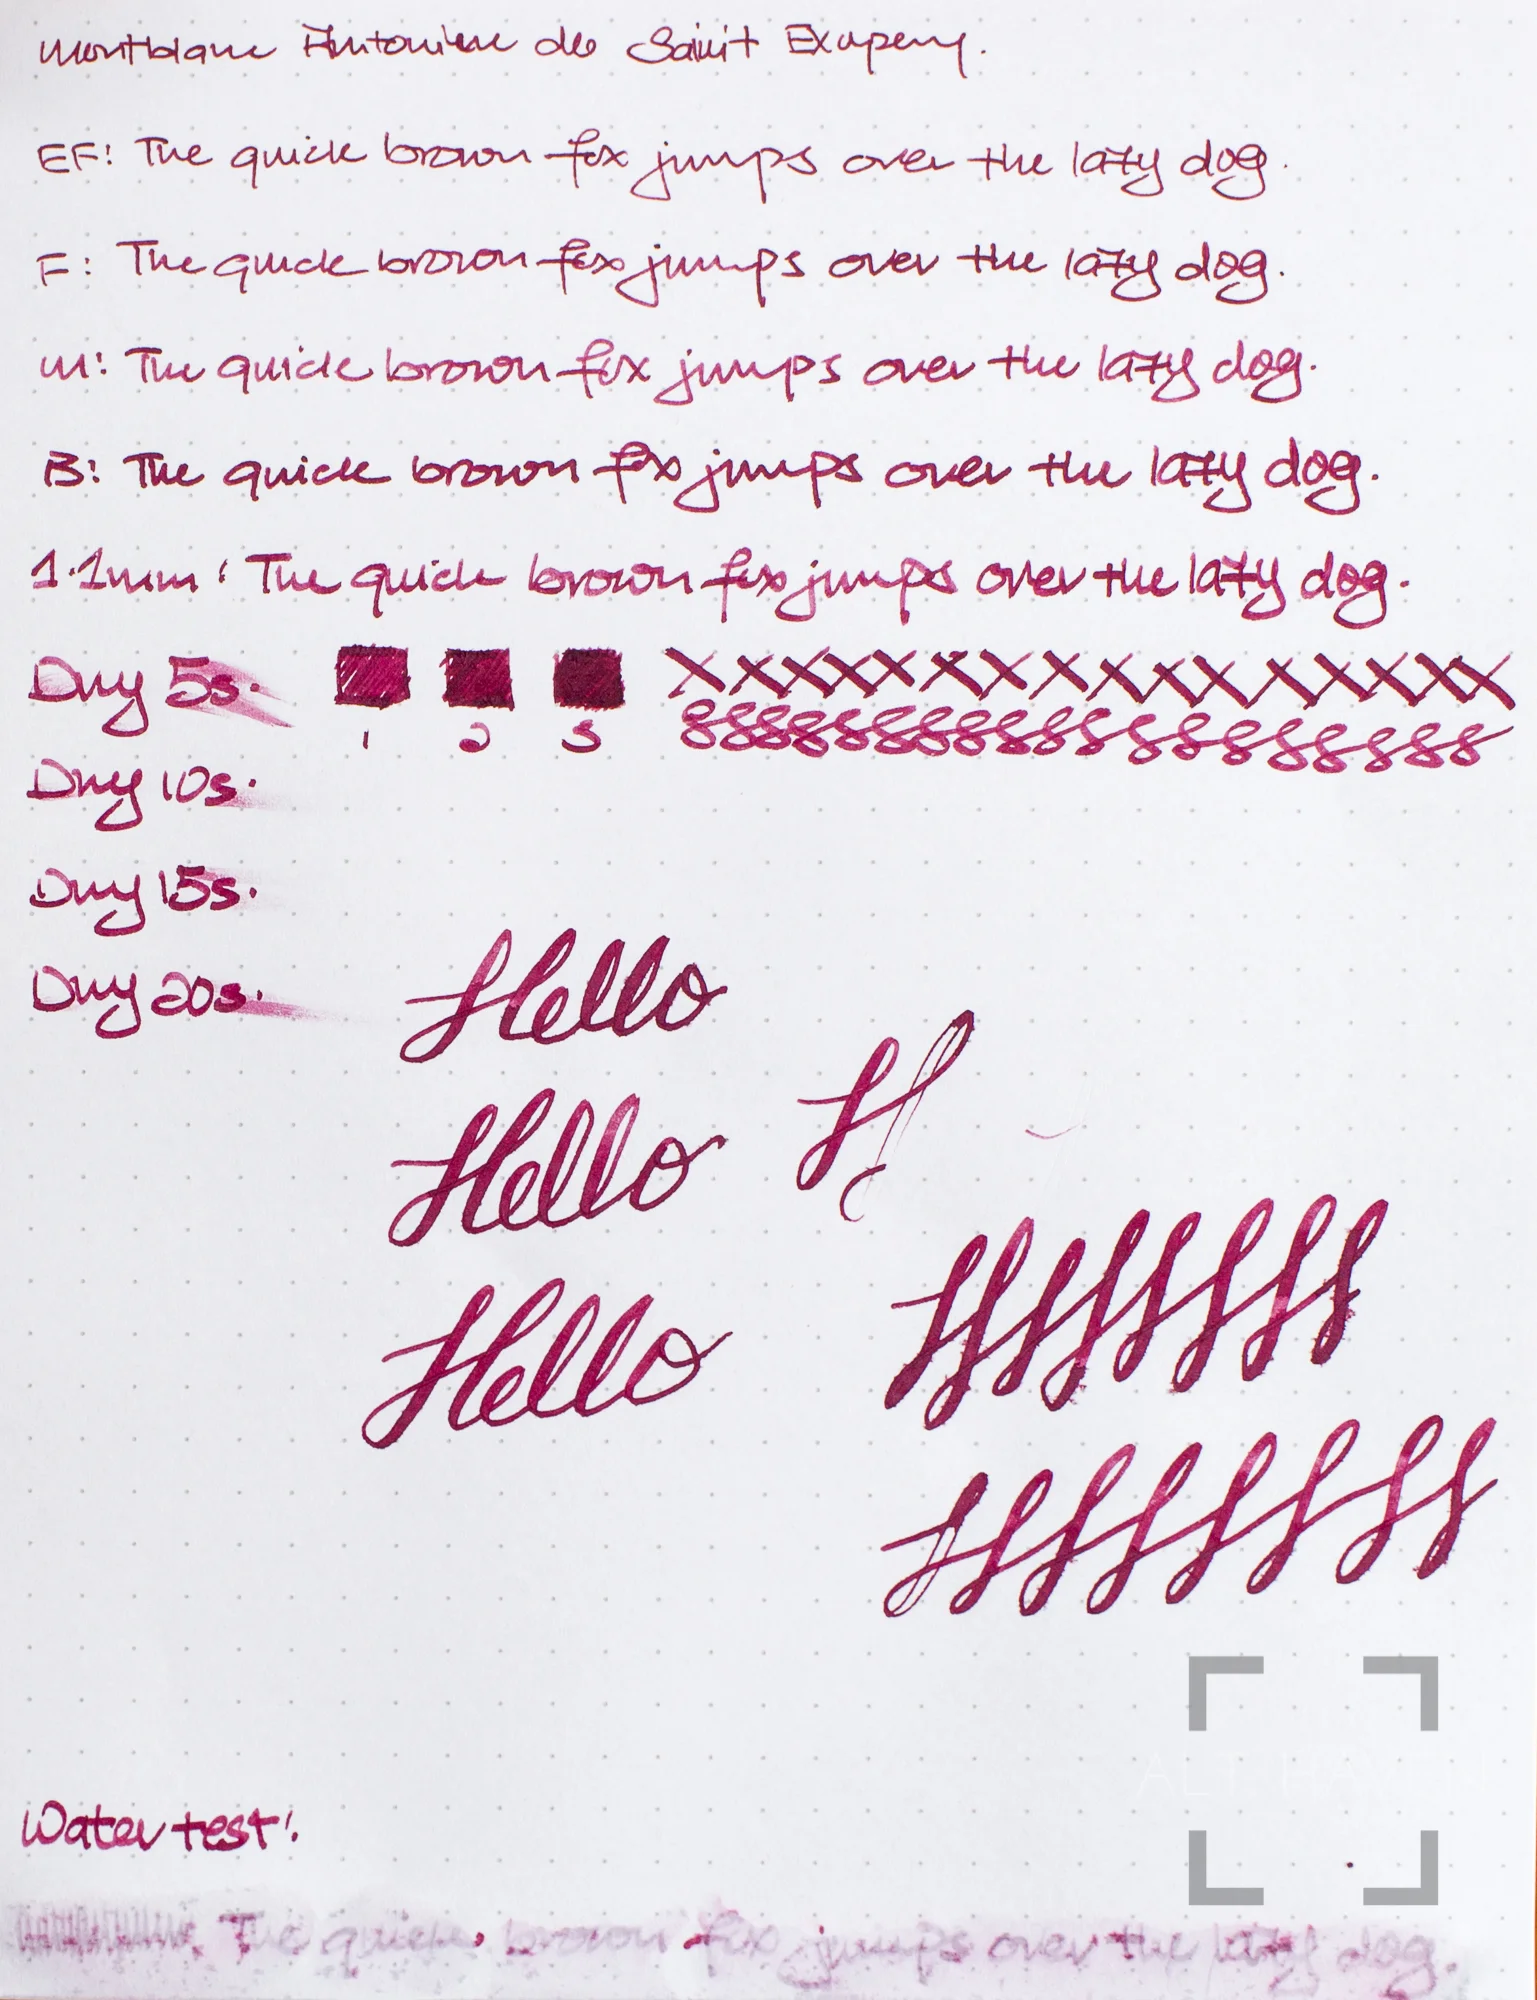 Montblanc Antoniere de Saint Exupery.
EF: The quick brown fox jumps over the lazy dog.
F: The quick brown fox jumps over the lazy dog.
M: The quick brown fox jumps over the lazy dog.
B: The quick brown fox jumps over the lazy dog.
1.1mm: The quick brown fox jumps over the lazy dog.
Dry 5s.
xxxxxxxxxxxxxxxx
8888888888888888888
1 2 3
Dry 10s.
Dry 15s.
Dry 20s.
Hello
Hello
Hello
H
Water test:
The quick brown fox jumps over the lazy dog.